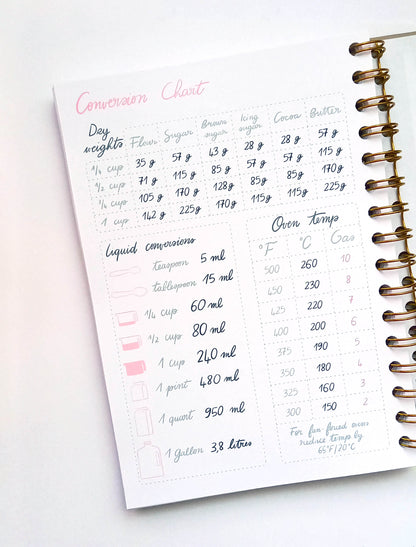 Conversion Chart
Dry weights Flour Sugar Brown sugar Icing sugar Cocoa Butter
1/4 cup 35 g 57 g 43 g 28 g 28 g 57 g
1/2 cup 71 g 115 g 85 g 57 g 57 g 115 g
3/4 cup 105 g 170 g 128g 85g 85g 170g
1 cup 142 g 225g 170g 115g 115g 225g
Liquid conversions
teaspoon 5 ml
tablespoon 15 ml
1/4 cup 60 ml
1/2 cup 80 ml
1 cup 240 ml
1 pint 480 ml
1 quart 950 ml
1 gallon 3,8 litres
Oven temp
°F °C Gas
500 260 10
450 230 8
425 220 7
400 200 6
375 190 5
350 180 4
325 160 3
300 150 2
For fan forced ovens
reduce temp by
65°F/20°C